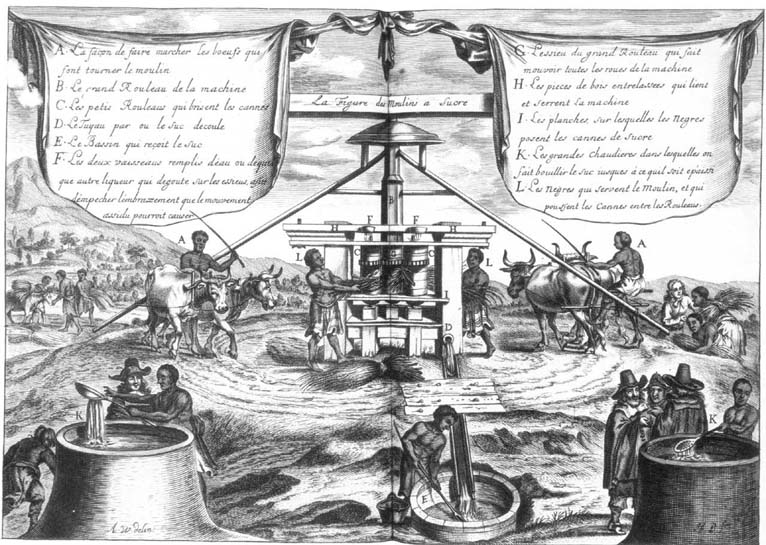 A· La façon de faire marcher les bœufs qui
font tourner le moulin
B· Le grand Rouleau de la machine
C· Les petis Rouleaus qui brisent les cannes
D· Le Tuyau par ou le suc decoule
E· Le Bassin qui reçoit le suc
F· Les deux vaisseaus remplis deau ou de quel
que autre liqueur qui degoute sur les essieus, afin
dempecher lembrazement que le mouvement
assidu pourroit causer
La Figure des Moulins a Sucre
G· Lessieu du grand Rouleau qui fait
mouvoir toutes les roues de la machine
H· Les pieces de bois entrelassees qui lient
et serrent la machine
I· Les planches, sur lesquelles les Negres
posent les cannes de sucre
K· Les grandes Chaudieres dans lesquelles on
fait bouillir le suc iusques a ce quil soit epaissi
L· Les Negres qui servent le Moulin, et qui
poussent les Cannes entre les Rouleaus·
B
F F
H H
A
A
L
C C
L
I
D
K
K
E
A W delin